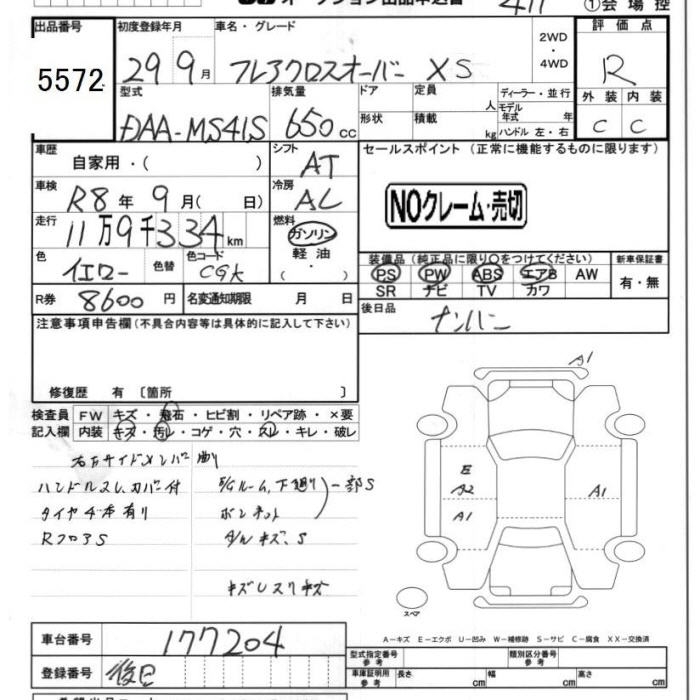 ①会場控
出品番号 初度登録年月 車名・グレード 評価点
5572 29 9月 フレアクロスオーバー XS 2WD・4WD R
型式 排気量 ドア 定員 人 ディーラー・並行
外装 内装
DAA-MS41S 650cc 形状 積載 kg モデル年式 年式 ハンドル 左・右 C C
車歴 自家用・( ) シフト AT セールスポイント (正常に機能するものに限ります)
車検 R8年9月( 日) 冷房 AC
NOクレーム・売切
走行 11万9千334km 燃料 ガソリン 軽油 ( ・ )
装備品(純正品に限り○をつけてください) 新車保証書
色 イエロー 色替 色コード CGK
PS PW ABS エアB AW 有・無
SR ナビ TV カワ
R券 8600円 名変通知期限 月 日
後日品 ナンバー
注意事項申告欄(不具合内容等は具体的に記入して下さい)
修復歴 有 〔箇所 〕
検査員 FW キズ・飛石・ヒビ割・リペア跡・×要
記入欄 内装 キズ・汚レ・コゲ・穴・スレ・キレ・破レ
右方サイドメンバー曲り
ハンドルスレ、カバー付 E/Gルーム、下廻り 一部S
タイヤ4本有り ボンネット
RフロアS
キズUスリキズ
A1
E
A2
A1
A1
スペア
A-キズ E-エクボ U-凹み W-補修跡 S-サビ C-腐食 XX-交換済
車台番号 177204
型式指定番号 参考 類別区分番号 参考
登録番号 後日
車庫証明用 参考 長さ cm 幅 cm 高さ cm